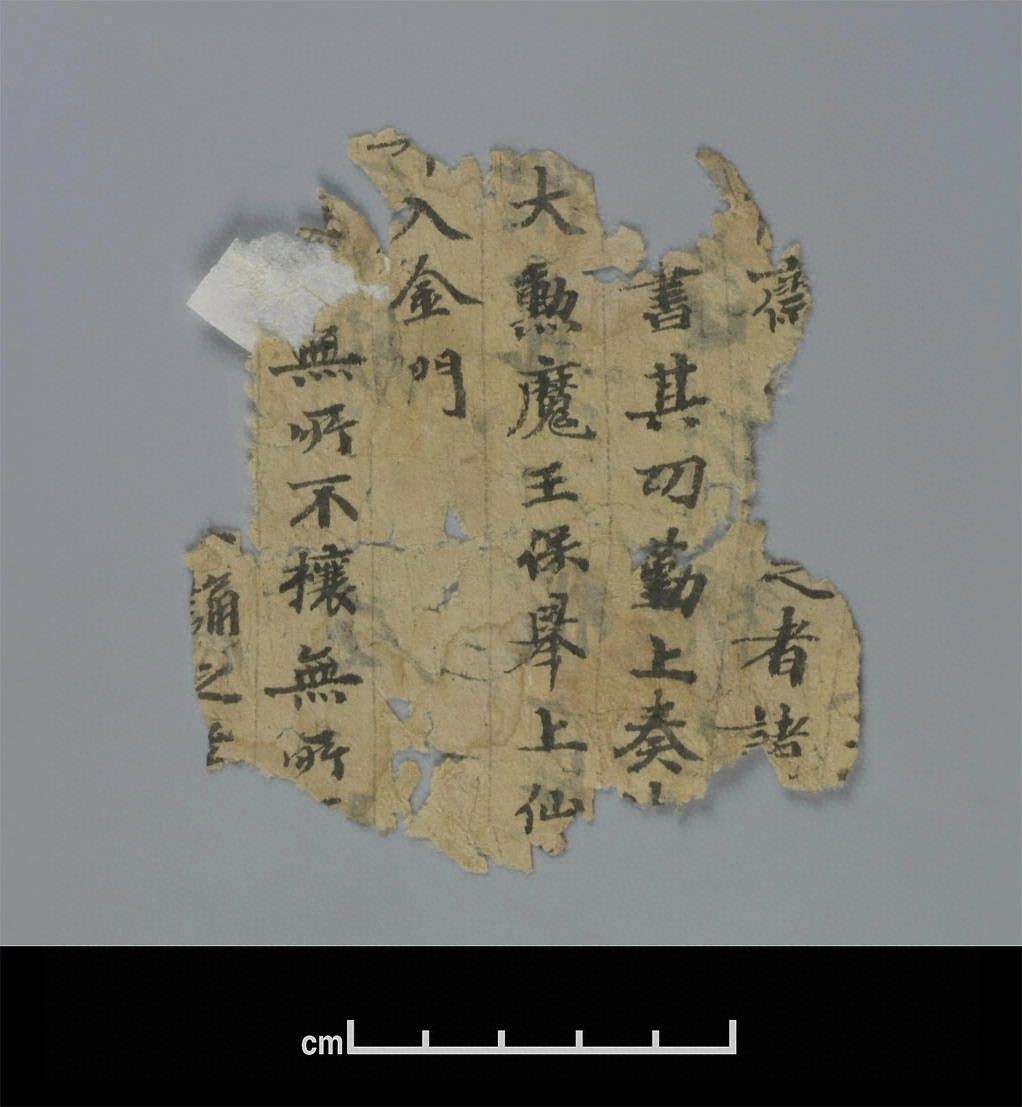 齋之者諸
書其功勤上奏
大勳魔王保舉上仙
入金門
無所不攘無所
誦之
cm